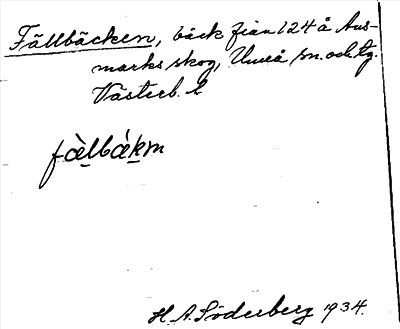 Fällbäcken, bäck från 124 å Aus-
marks skog, Umeå sn. och tg.
Västerb. l.
fälbäkm
H. A. Söderberg 1934.